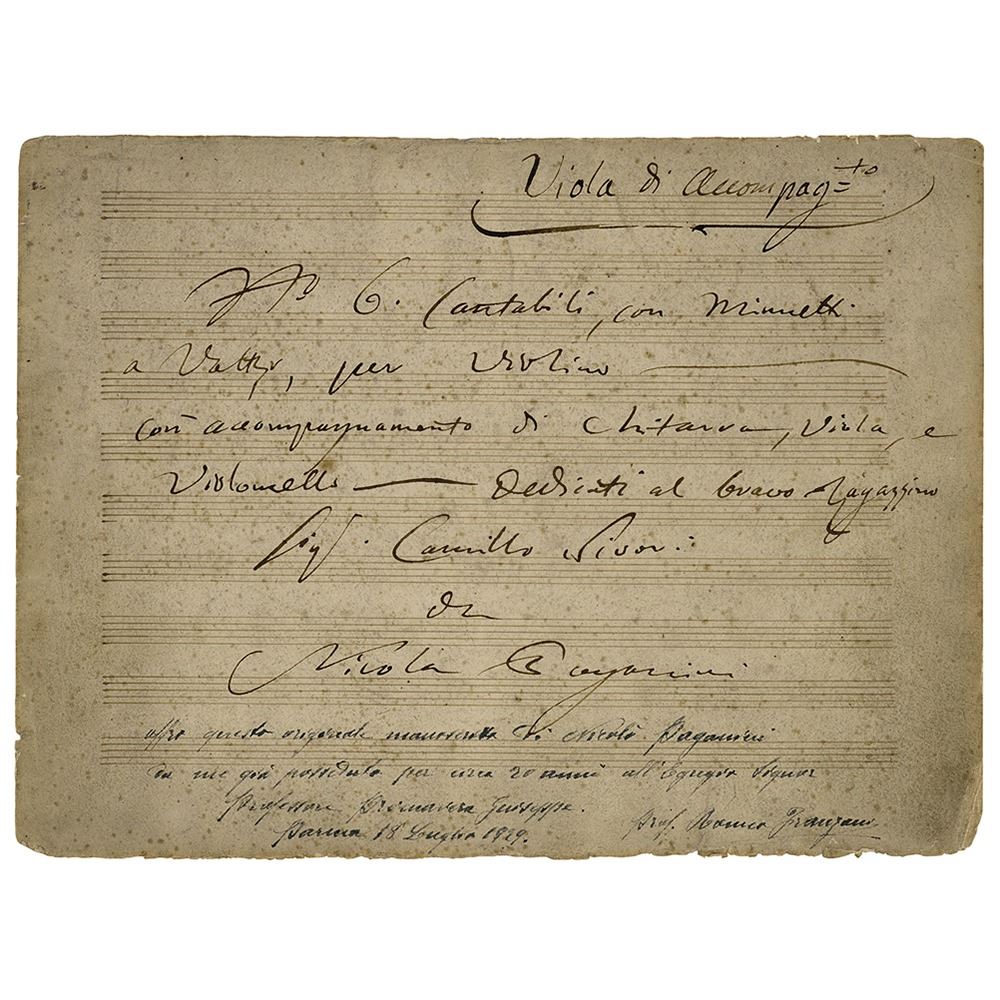 Viola di accompag.to
N.o 6. Cantabili, con Minuetti
a Valtz, per Violino
con accompagnamento di chitarra, viola, e
Violoncello dedicati al bravo Ragazzino
Sig.r Camillo Sivori
da
Nicolò Paganini
offro questo originale manoscritto di Nicolò Paganini
da me già posseduto per circa 20 anni all'Egregio Signor
Professore Primavera Giuseppe.
Parma 18 Luglio 1929.
Prof. Romeo Franzoni